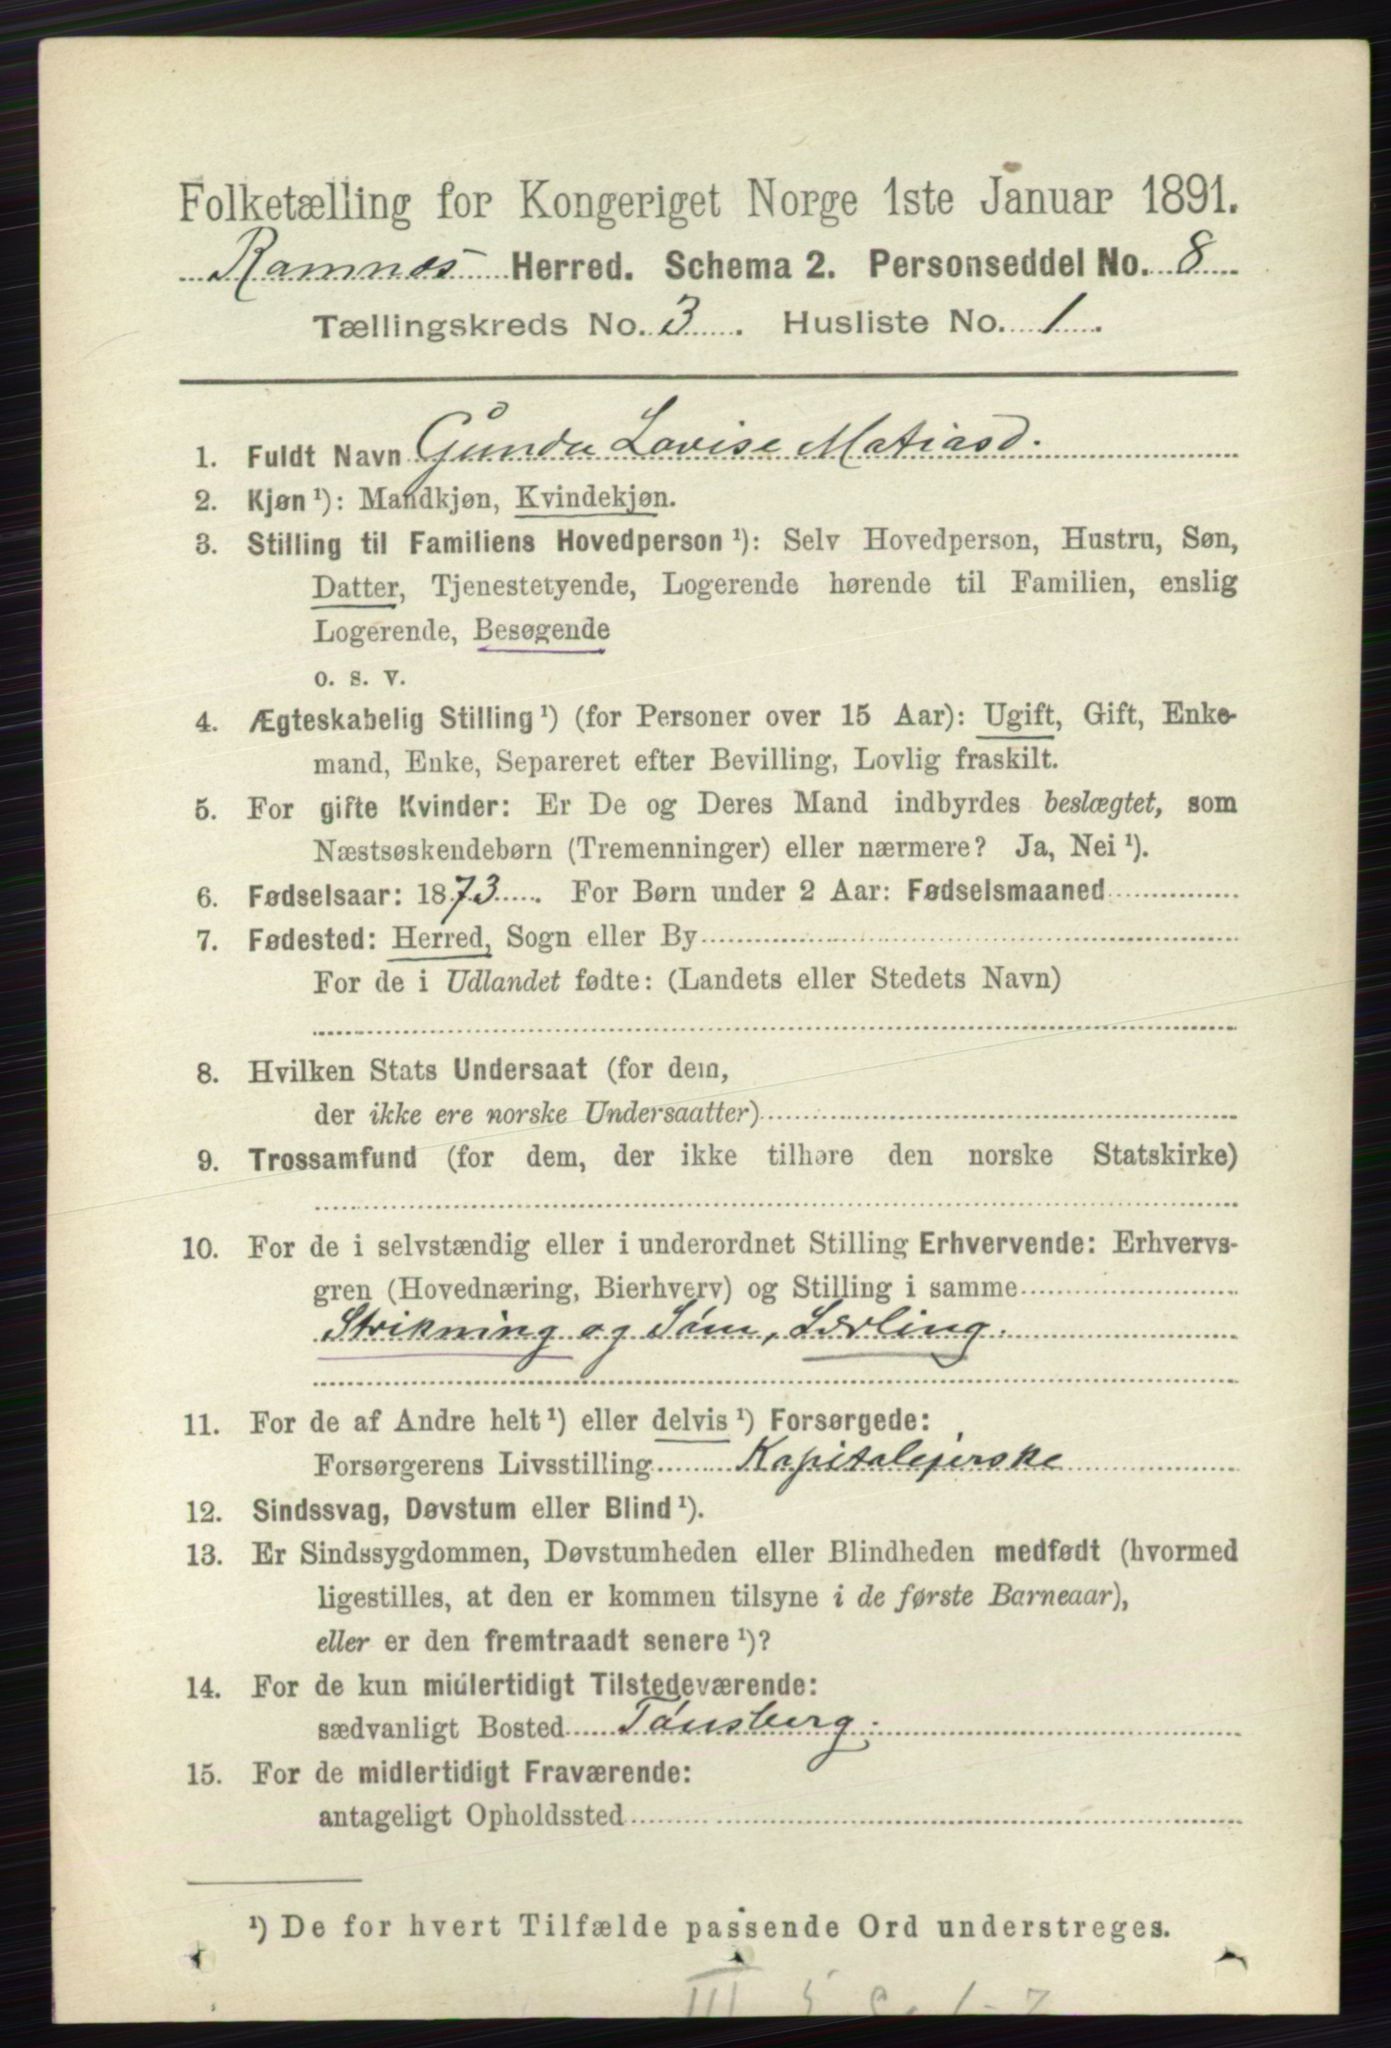 Folketælling for Kongeriget Norge 1ste Januar 1891.
Ramnes Herred. Schema 2. Personseddel No. 8
Tællingskreds No. 3. Husliste No. 1.
1. Fuldt Navn Gunda Lovise Matiasd.
2. Kjøn ¹): Mandkjøn, Kvindekjøn.
3. Stilling til Familiens Hovedperson ¹): Selv Hovedperson, Hustru, Søn,
Datter, Tjenestetyende, Logerende hørende til Familien, enslig
Logerende, Besøgende
o. s. v.
4. Ægteskabelig Stilling ¹) (for Personer over 15 Aar): Ugift, Gift, Enke-
mand, Enke, Separeret efter Bevilling, Lovlig fraskilt.
5. For gifte Kvinder: Er De og Deres Mand indbyrdes beslægtet, som
Næstsøskendebørn (Tremenninger) eller nærmere? Ja, Nei ¹).
6. Fødselsaar: 1873. For Børn under 2 Aar: Fødselsmaaned
7. Fødested: Herred, Sogn eller By
For de i Udlandet fødte: (Landets eller Stedets Navn)
8. Hvilken Stats Undersaat (for dem,
der ikke ere norske Undersaatter)
9. Trossamfund (for dem, der ikke tilhøre den norske Statskirke)
10. For de i selvstændig eller i underordnet Stilling Erhvervende: Erhvervs-
gren (Hovednæring, Bierhverv) og Stilling i samme
Strikning og Søm, Lærling.
11. For de af Andre helt ¹) eller delvis ¹) Forsørgede:
Forsørgerens Livsstilling Kapitalejerske
12. Sindssvag, Døvstum eller Blind ¹).
13. Er Sindssygdommen, Døvstumheden eller Blindheden medfødt (hvormed
ligestilles, at den er kommen tilsyne i de første Barneaar),
eller er den fremtraadt senere ¹)?
14. For de kun midlertidigt Tilstedeværende:
sædvanligt Bosted Tønsberg.
15. For de midlertidigt Fraværende:
antageligt Opholdssted
¹) De for hvert Tilfælde passende Ord understreges.